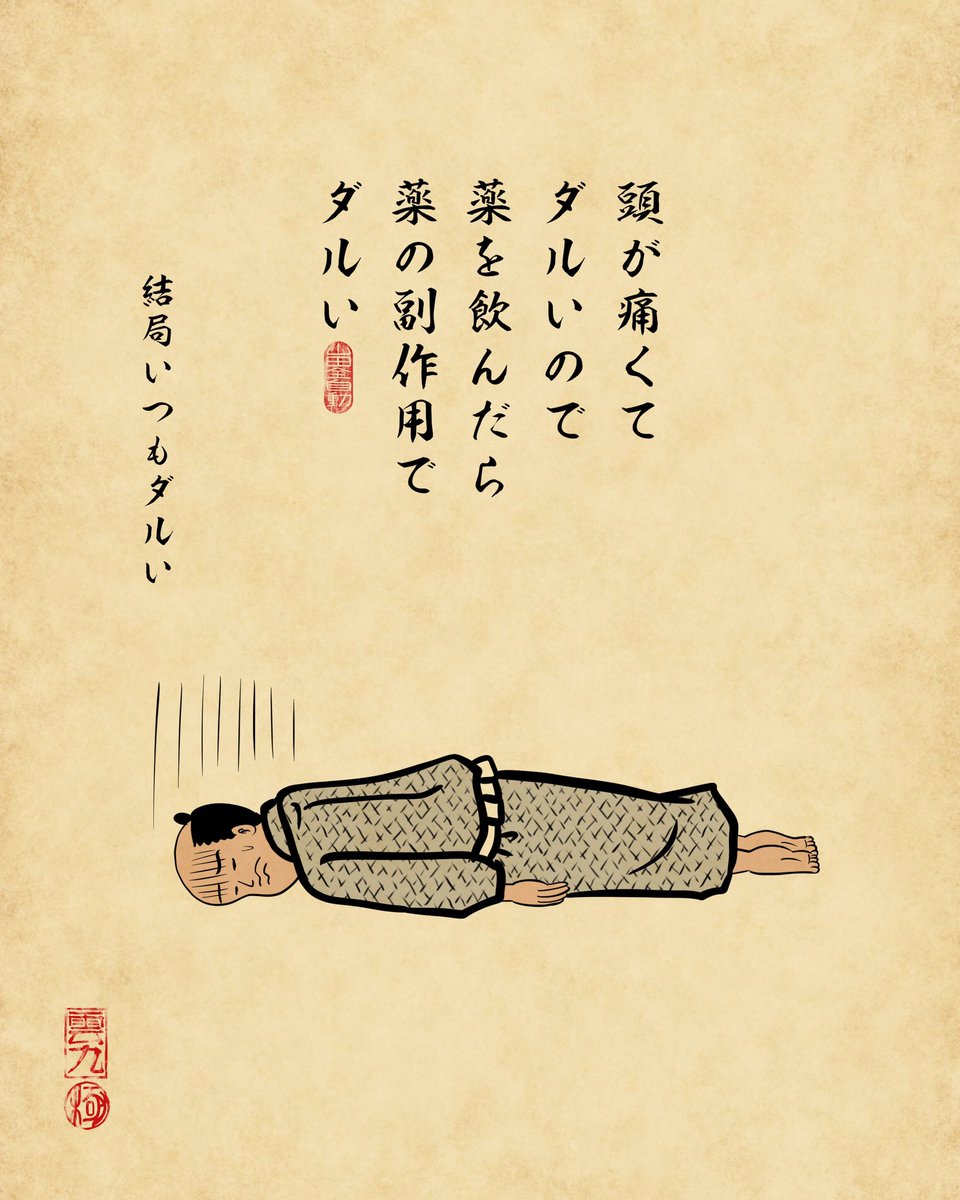 頭が痛くて
ダルいので
薬を飲んだら
薬の副作用で
ダルい
結局いつもダルい